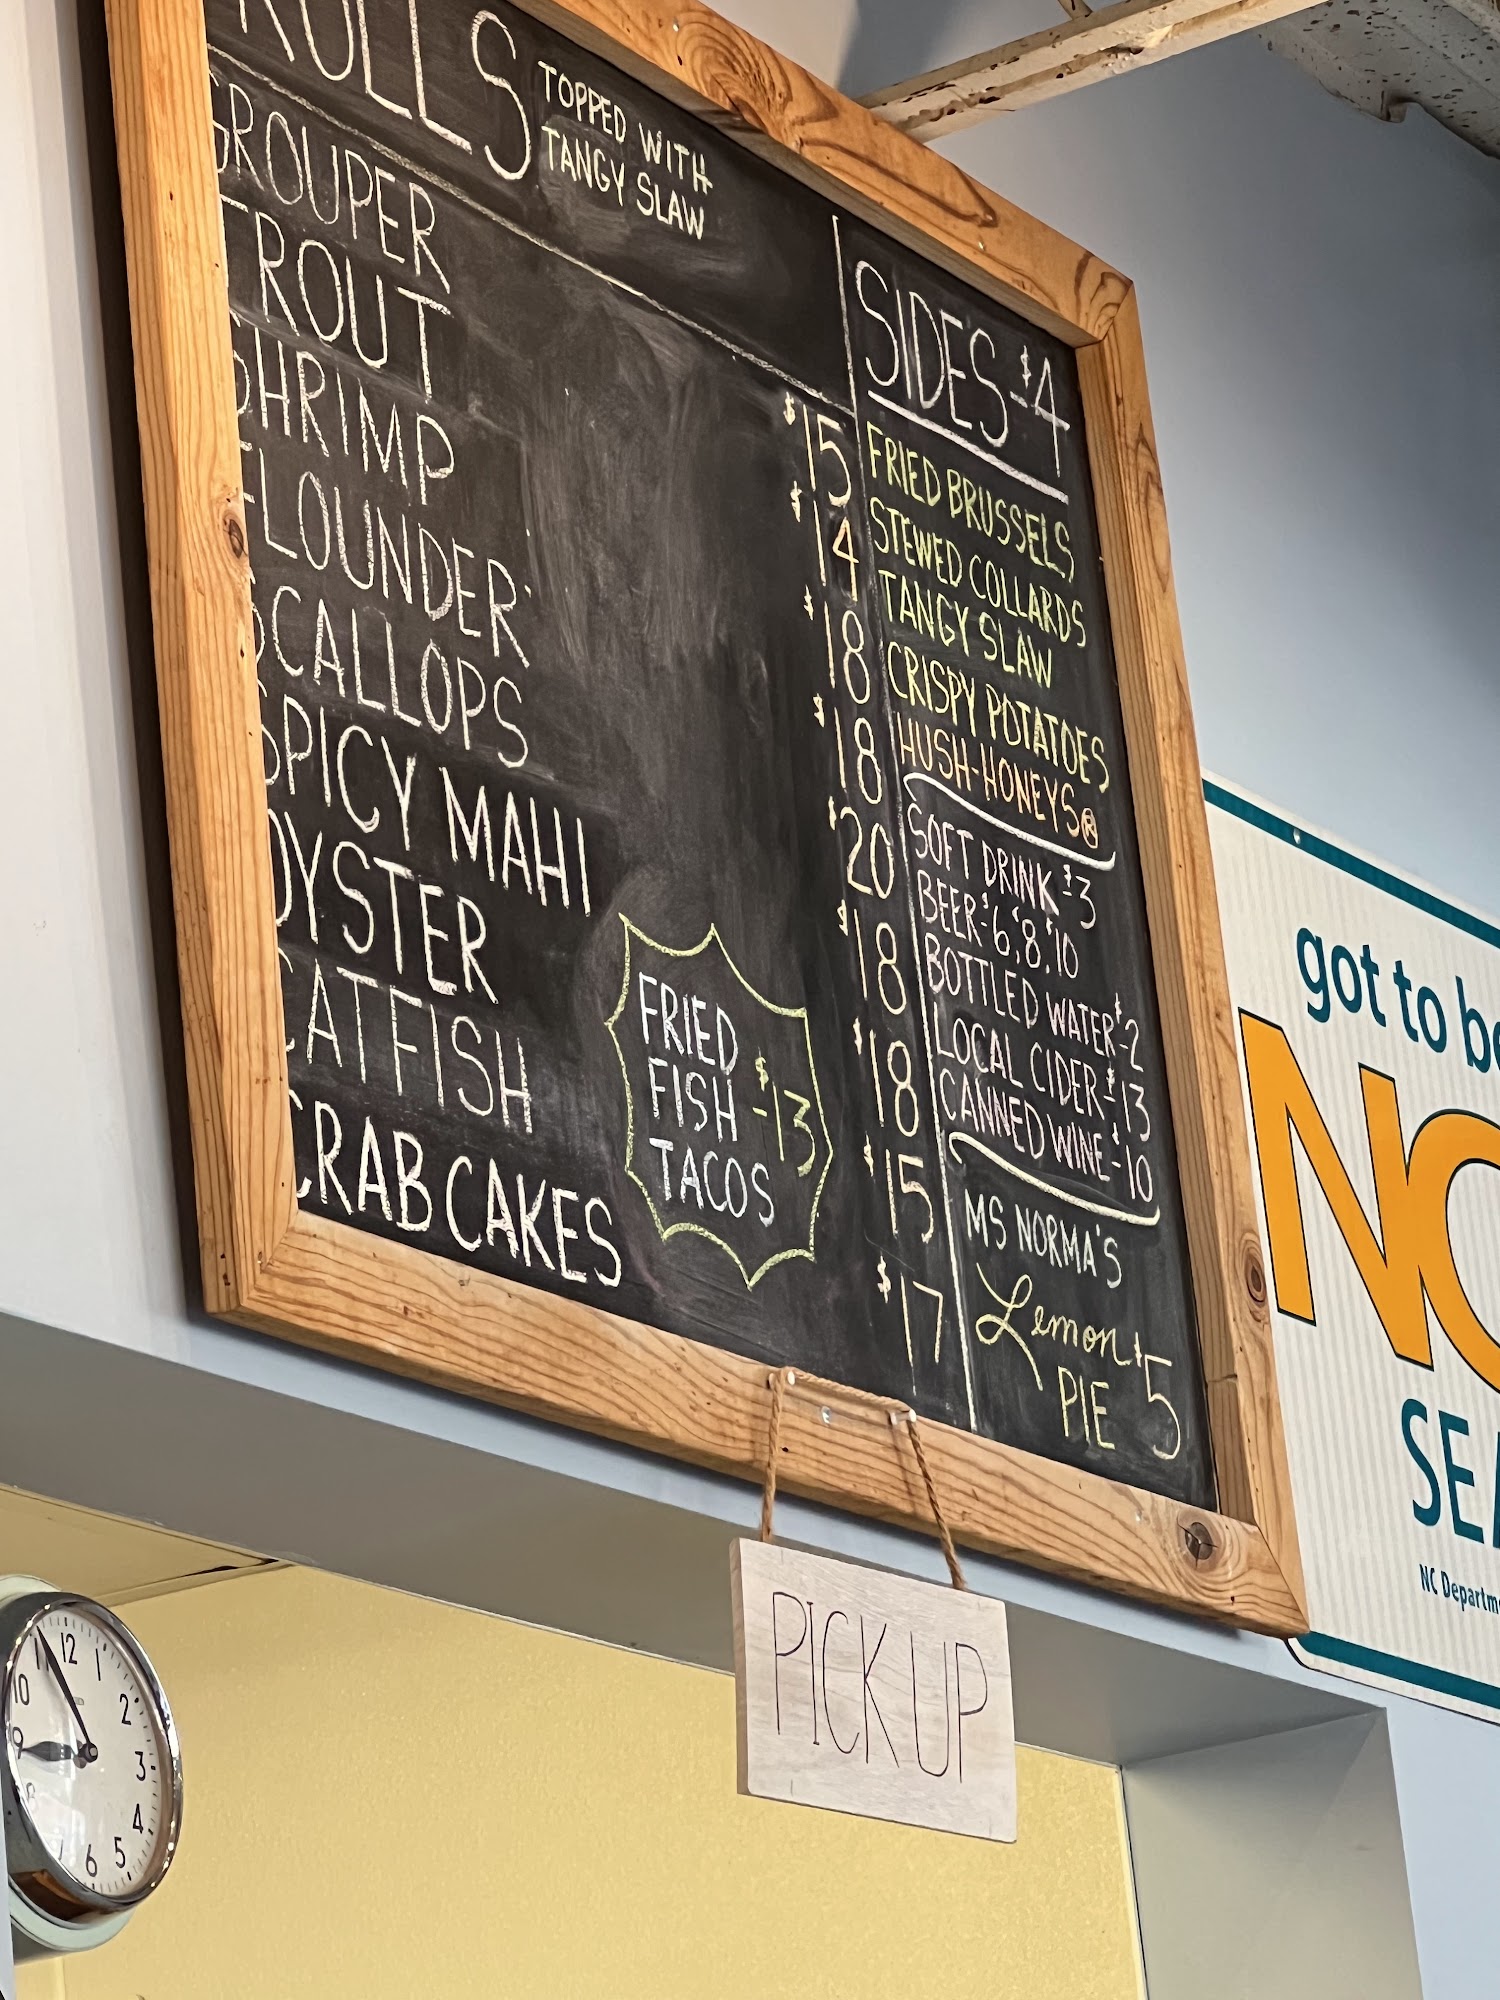 ROLLS TOPPED WITH
TANGY SLAW
GROUPER $15
TROUT $14
SHRIMP $18
FLOUNDER $18
SCALLOPS $20
SPICY MAHI $18
OYSTER $18
CATFISH $15
CRAB CAKES $17
FRIED
FISH -$13
TACOS
SIDE'S-$4
FRIED BRUSSELS
STEWED COLLARDS
TANGY SLAW
CRISPY POTATOES
HUSH-HONEYS®
SOFT DRINK-$3
BEER-$6,$8,$10
BOTTLED WATER-$2
LOCAL CIDER-$13
CANNED WINE-$10
MS NORMA'S
Lemon $5
PIE
PICK UP
got to be
NC
SEA
NC Departm
12
1
2
3
4
5
6
8
9
10
11